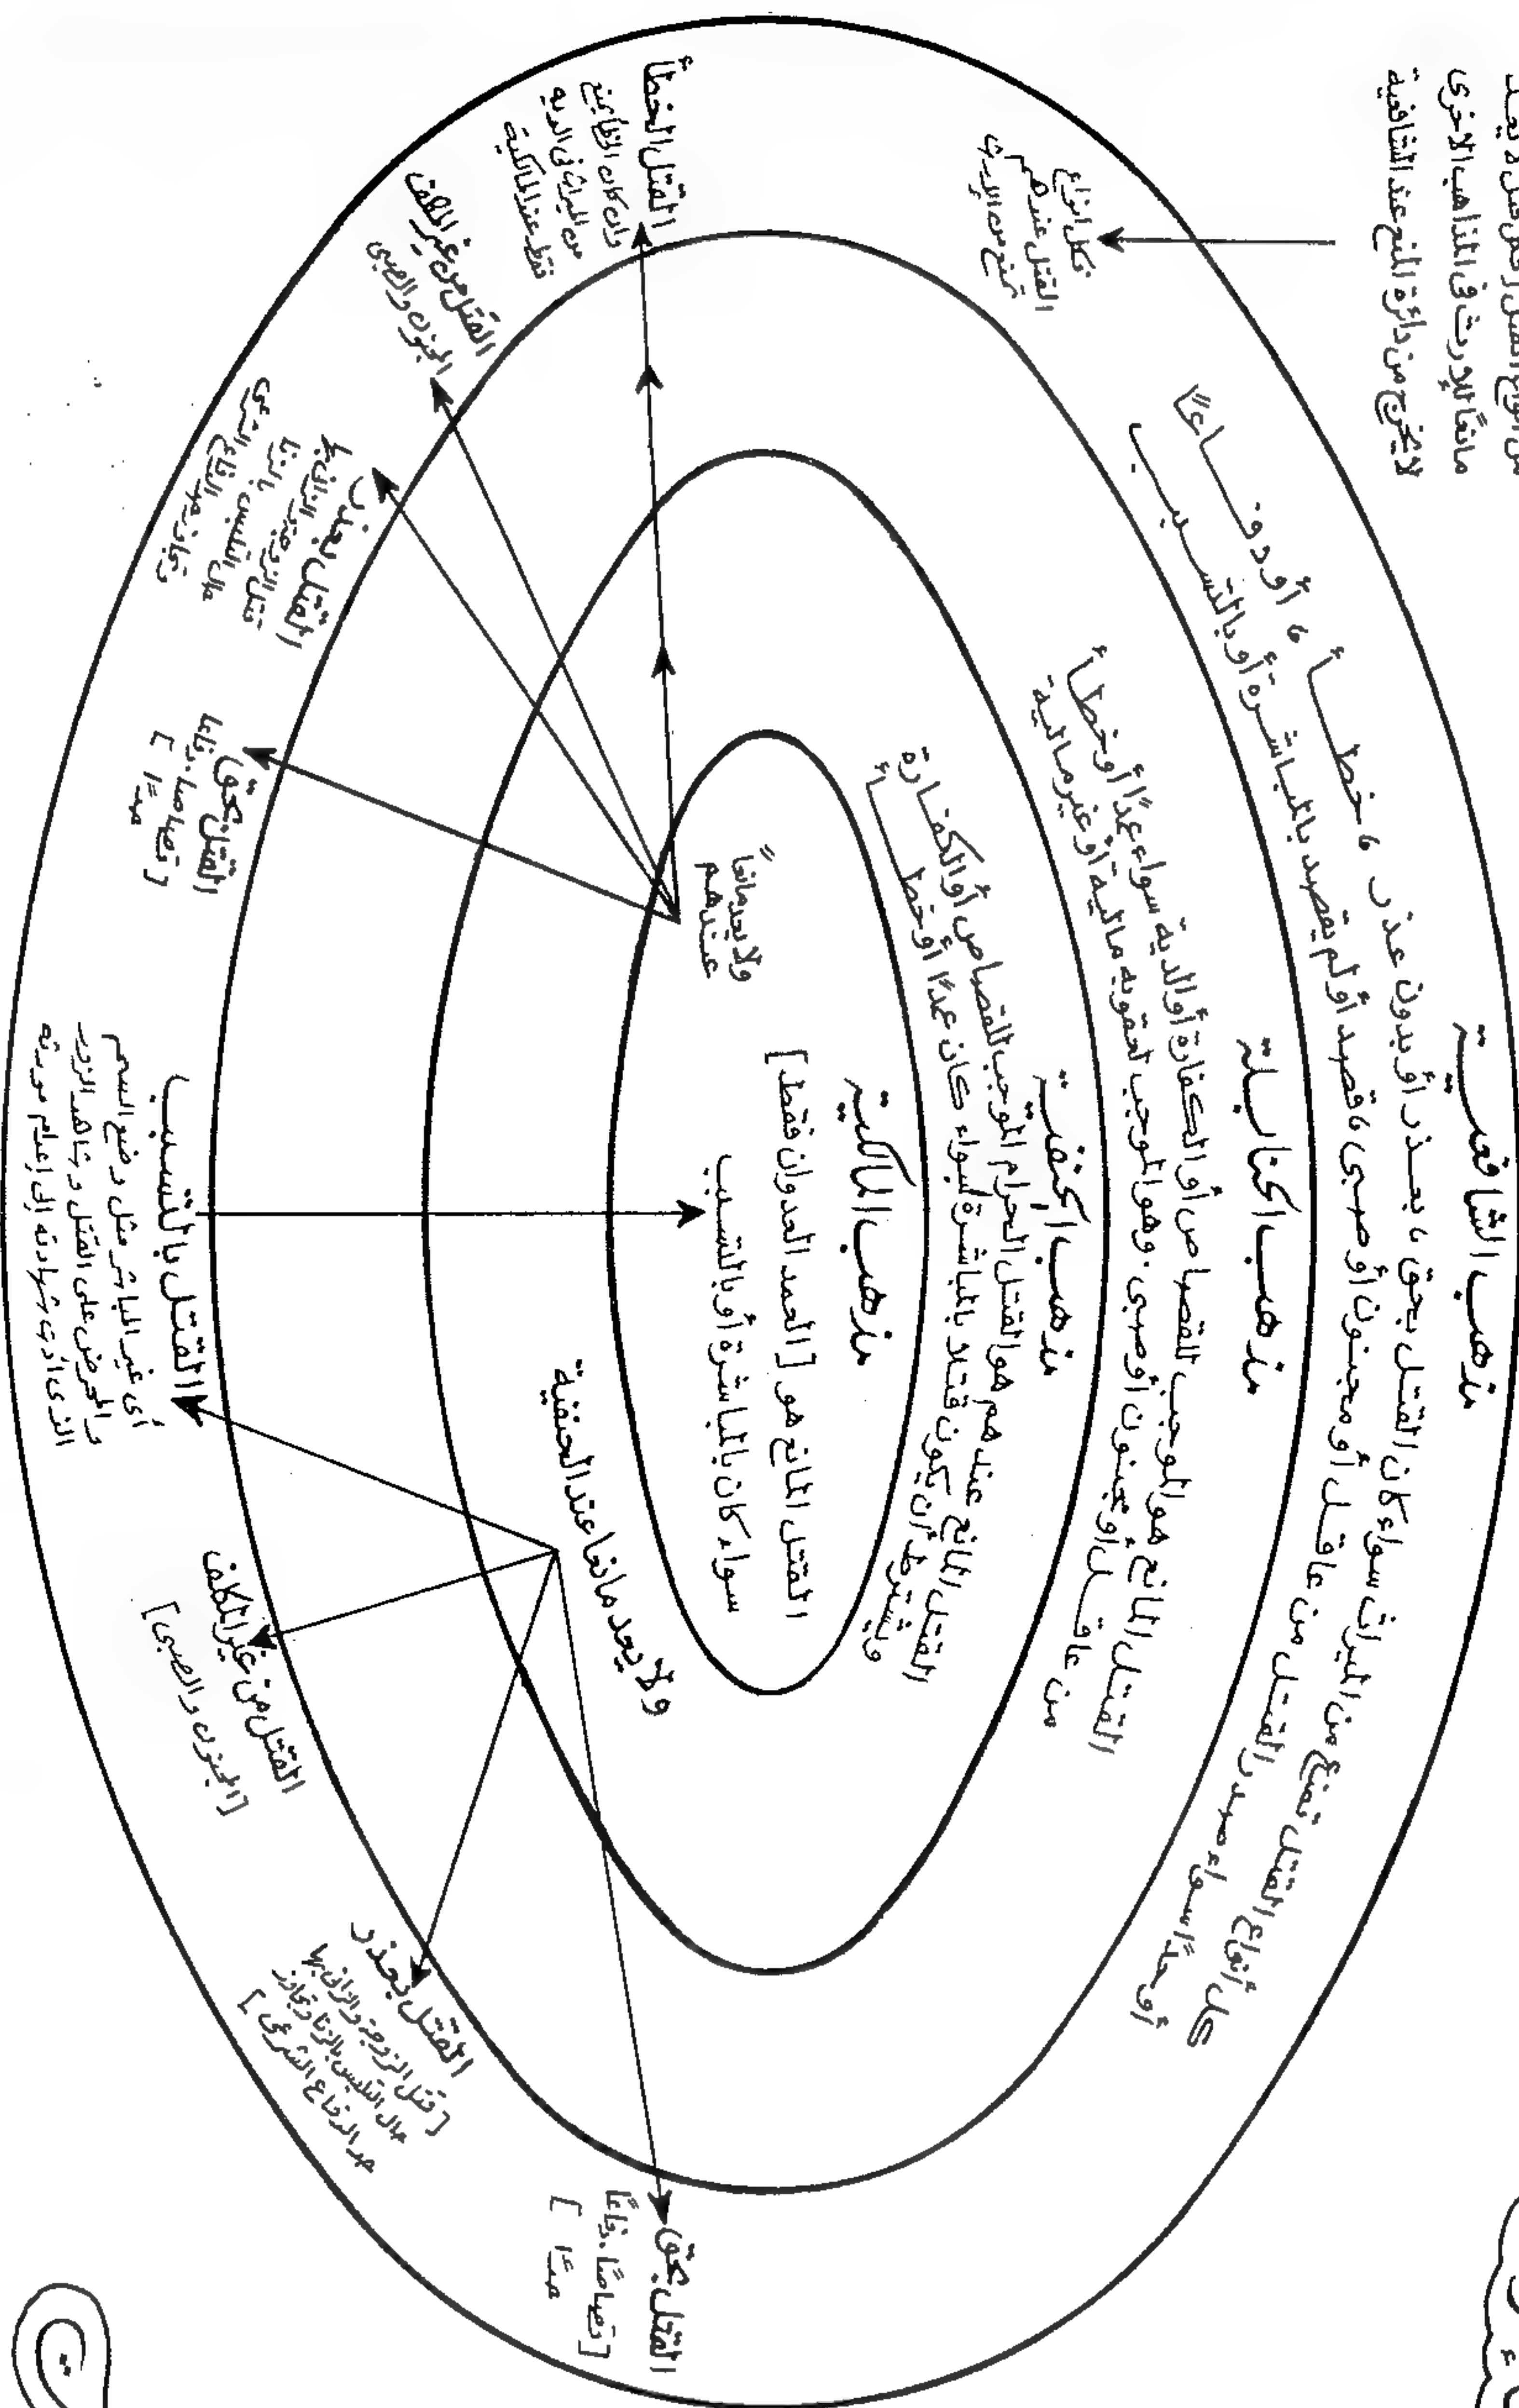 مانعًا للإرث فى المذاهب الأخرى
لا يخرج من دائرة المنع عند الشافعية
مذهب الشافعية
كل أنواع القتل تمنع من الميراث سواء كان القتل بحق ، بعذر أو بدون عذر ، خطأ ، أو دفاعًا
أو حدًا سواء صدر القتل من عاقل أو مجنون أو صبى ، قصد أو لم يقصد بالمباشرة أو بالتسبب
فكل أنواع
القتل عندهم
تمنع من الإرث
مذهب الحنابلة
القتل المانع هو الموجب للقصاص أو الكفارة أو الدية سواء عمدًا أو خطأ
من عاقل أو مجنون أو صبى . وهو الموجب لعقوبه مالية أو غير مالية
مذهب الحنفية
القتل المانع عندهم هو القتل الحرام الموجب للقصاص أو الكفارة
ويشترط أن يكون قتلا بالمباشرة سواء كان عمدًا أو خطأ
مذهب المالكية
القتل المانع هو [ العمد العدوان فقط ]
سواء كان بالمباشرة أو بالتسبب
ولا يعد مانعًا
عندهم
القتل الخطأ
وإن كان الخطأ يمنع
من الميراث فى الدية
فقط عند المالكية
القتل من غير المكلف
المجنون والصبى
القتل بعذر
قتل الزوجة والزانى بها
حال التلبس بالزنا
وتجاوز حد الدفاع الشرعى
القتل بحق
[ قصاصا . دفاعا
حدًا ]
ولا يعد مانعا عند الحنفية
القتل بالتسبب
أى غير المباشر مثل وضع السم
والمحرض على القتل وشاهد الزور
الذى أدت شهادته إلى إعدام مورثه
القتل من غير المكلف
[ المجنون والصبى ]
القتل بعذر
[ قتل الزوجة والزانى بها
حال التلبس بالزنا وتجاوز
حد الدفاع الشرعى ]
القتل بحق
[ قصاصًا . دفاعًا
حدًا ]